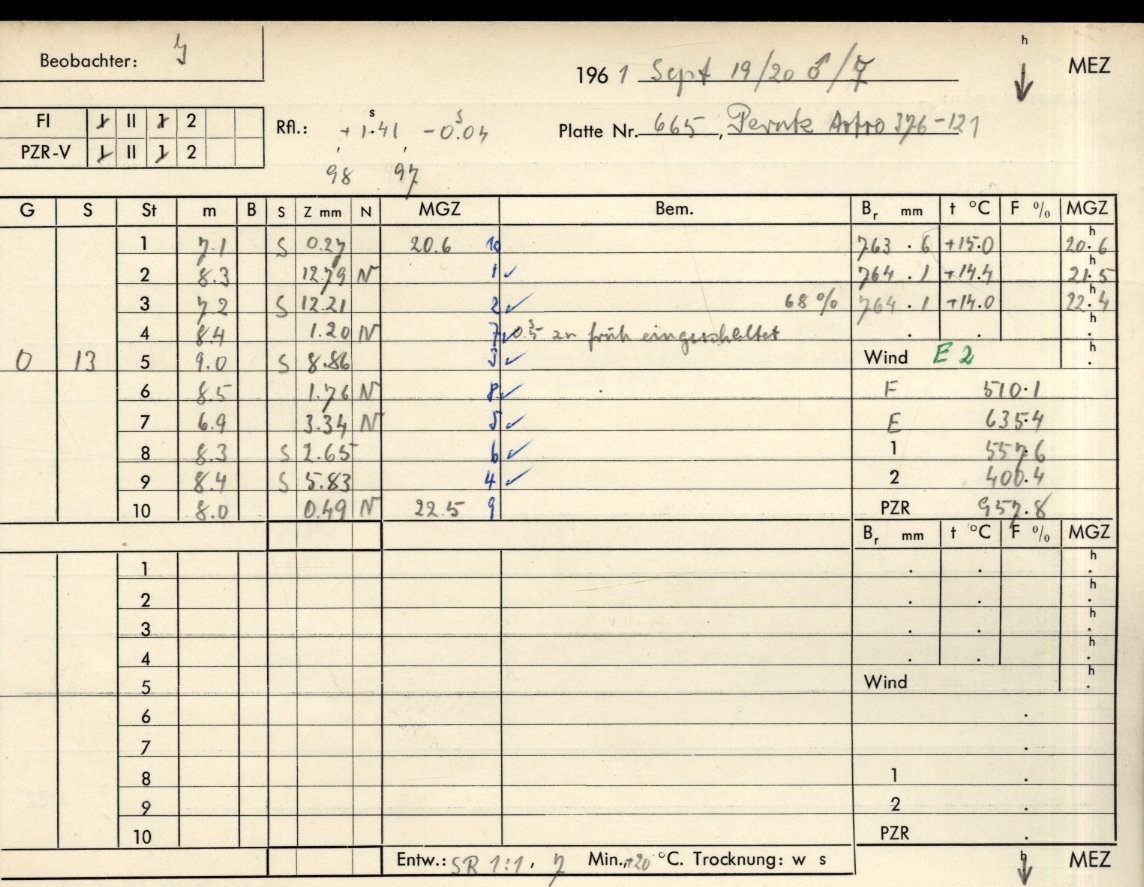 Beobachter:
1961 Sept 19/20 ♂/☿
h
MEZ
FI I II 1 2
PZR-V I II 1 2
Rfl.: +1.ˢ41 -0.ˢ04
98 97
Platte Nr. 665, Perutz Astro 376-121
G S St m B S Z mm N MGZ Bem. Bᵣ mm t °C F % MGZ
1 7.1 S 0.27 20.6 10 763.6 +15.0 20.ʰ6
2 8.3 12.79 N 1 ✓ 764.1 +14.4 21.ʰ5
3 7.2 S 12.21 2 ✓ 68% 764.1 +14.0 22.ʰ4
4 8.4 1.20 N 7 ✓ 0.ˢ5 zu früh eingeschaltet . . h.
O 13 5 9.0 S 8.86 3 ✓ Wind E 2 h.
6 8.5 1.76 N 8 ✓ F 510.1
7 6.9 3.34 N 5 ✓ E 635.4
8 8.3 S 2.65 6 ✓ 1 557.6
9 8.4 S 5.83 4 ✓ 2 400.4
10 8.0 0.49 N 22.5 9 PZR 957.8
Bᵣ mm t °C F % MGZ
1 . . h.
2 . . h.
3 . . h.
4 . . h.
5 Wind h.
6 .
7 .
8 1 .
9 2 .
10 PZR .
Entw.: SR 1:1, 7 Min., +20 °C. Trocknung: w s
h
MEZ